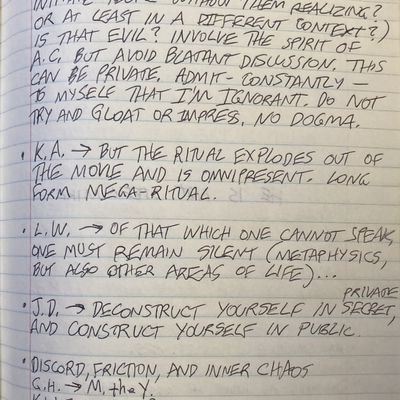 INITIATE PEOPLE WITHOUT THEM REALIZING?
OR AT LEAST IN A DIFFERENT CONTEXT?)
IS THAT EVIL? INVOLVE THE SPIRIT OF
A.C. BUT AVOID BLATANT DISCUSSION. THIS
CAN BE PRIVATE. ADMIT - CONSTANTLY -
TO MYSELF THAT I'M IGNORANT. DO NOT
TRY AND GLOAT OR IMPRESS. NO DOGMA.
• K.A. → BUT THE RITUAL EXPLODES OUT OF
THE MOVIE AND IS OMNIPRESENT. LONG
FORM MEGA-RITUAL.
• L.W. → OF THAT WHICH ONE CANNOT SPEAK,
ONE MUST REMAIN SILENT (METAPHYSICS,
BUT ALSO OTHER AREAS OF LIFE)...
PRIVATE
• J.D. → DECONSTRUCT YOURSELF IN SECRET,
AND CONSTRUCT YOURSELF IN PUBLIC.
• DISCORD, FRICTION, AND INNER CHAOS
G.H. → M. they.